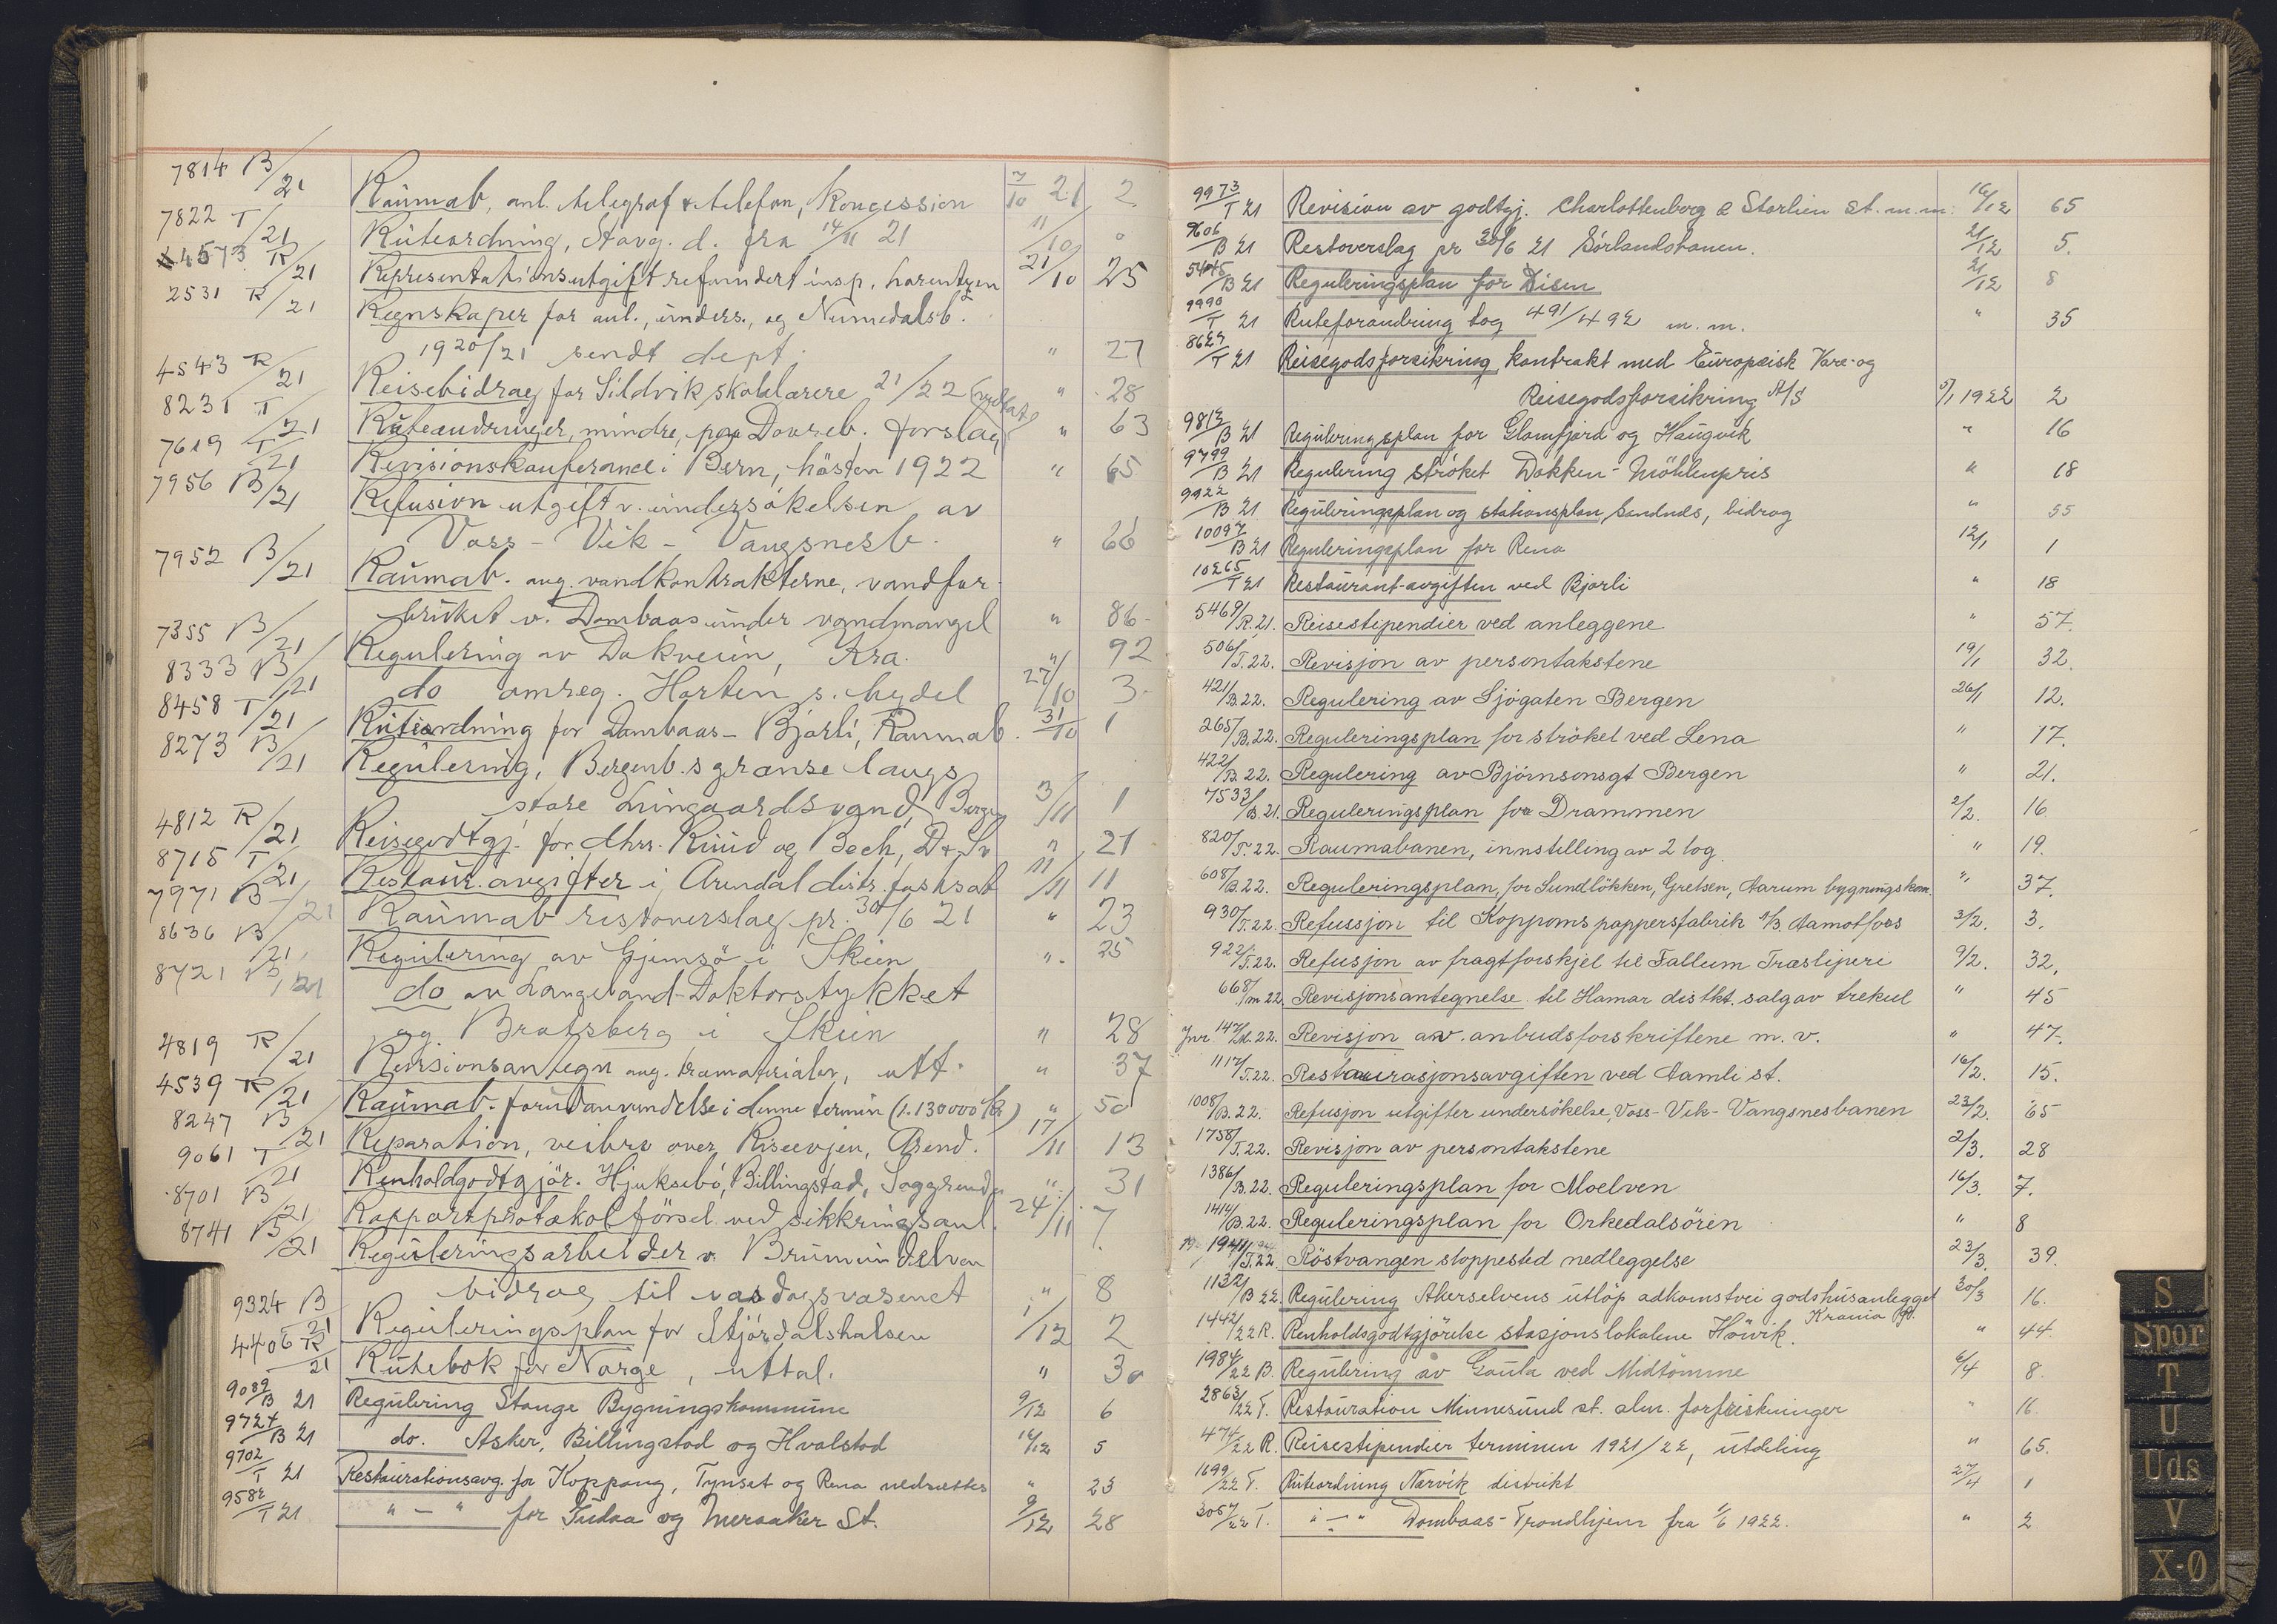 7814 B/21 Raumab, anl. telegraf & telefon, Koncession 7/10 21 2
7822 T/21 Ruteordning, Stavg. d. fra 14/11 21 11/10 0
4573 R/21 Representationsutgift refundert insp. 21/10 25
2531 R/21 Regnskaper for anl., unders., og Numedalsb.
1920/21 sendt dept. " 27
4543 R/21 Reisebidrag for Sildvik skolelærere 21/22 " 28
8231 T/21 Ruteændringer, mindre, paa Dovreb. forslag " 63
7619 T/21 Revisionskonferance i Bern, hösten 1922 " 65
7956 B/21 Refusion utgift v. undersökelsen av
Voss - Vik - Vangsnesb. " 66
7952 B/21 Raumab. ang. vandkontrakterne, vandfor-
bruket v. Dombaas under vandmangel " 86
7355 B/21 Regulering av Dokveien, Kra. " 92
8333 B/21 do omreg. Horten s. bydel 27/10 3
8458 T/21 Ruteordning for Dombaas - Bjorli, Raumab. 31/10 1
8273 B/21 Regulering, Bergensb.s grænse langs
store Lungaardsvand, Bergen 3/11 1
4812 R/21 Reisegodtgj. for Chrs. Ruud og Bech, D & Sv " 21
8715 T/21 Restaur. avgifter i Arendal distr. fastsat 11/11 11
7971 B/21 Raumab restoverslag pr. 30/6 21 " 23
8636 B/21 Regulering av Gjemsö i Skien " 25
8721 B/21 do av Langeland-Doktorstykket
og Bratsberg i Skien " 28
4819 R/21 Revisionsantegn ang. træmaterialer, utt. " 37
4539 R/21 Raumab. forutanvendelse i denne termin (1.130000 Kr) " 50
8247 B/21 Reparation, veibro over Riseveien, Arend. 17/11 13
9061 T/21 Renholdgodtgjör. Hjuksebö, Billingstad, Saggrenda " 31
8701 B/21 Rapportprotokolförsel ved sikkringsanl. 24/11 7
8741 B/21 Reguleringsarbeider v. Brumunddelven
bidrag til vasdragsvæsenet " 8
9324 B/21 Reguleringsplan for Stjördalshalsen 1/12 2
4406 R/21 Rutebok for Norge, uttal. " 30
9089/B 21 Regulering Stange Bygningskommune 9/12 6
9724/B 21 do. Asker, Billingstad og Hvalstad 16/12 5
9702/T 21 Restaurationsavg. for Koppang, Tynset og Rena nedsættes " 23
9582/T 21 " - " for Gudaa og Meraaker St. 9/12 28
9973/T 21 Revision av godtgj. Charlottenberg & Storlien st. m.m. 16/12 65
9606/B 21 Restoverslag pr 30/6 21 Sörlandsbanen. 21/12 5.
5445/B 21 Reguleringsplan for Disen 21/12 8
9990/T 21 Ruteforandring tog 491/492 m.m. " 35
8627/T 21 Reisegodsforsikring, kontrakt med Europæisk Vare- og
Reisegodsforsikring A/S 5/1 1922 2
9813/B 21 Reguleringsplan for Glomfjord og Haugvik " 16
9799/B 21 Regulering ströket Dokken - Möhlenpris " 18
9922/B 21 Reguleringsplan og stationsplan, Sandnes, bidrag " 55
10097/B 21 Reguleringsplan for Rena 12/1 1
10265/T 21 Restaurant-avgiften ved Bjorli " 18
5469/R. 21. Reisestipendier ved anleggene " 57.
506/T. 22. Revisjon av persontakstene 19/1 32.
421/B. 22. Regulering av Sjögaten Bergen 26/1 12.
265/B. 22. Reguleringsplan for ströket ved Lena " 17.
422/B. 22. Regulering av Björnsonsgt Bergen " 21.
7533/B. 21. Reguleringsplan for Drammen 2/2. 16
820/T. 22. Raumabanen, innstilling av 2 tog. " 19.
608/B. 22. Reguleringsplan, for Sundlökken, Greåsen, Aarum bygningskom. " 37.
930/T. 22. Refussjon til Koppoms pappersfabrik A/B. Aamotfors 3/2. 3.
922/T. 22. Refusjon av fragtforskjel til Fallum Træsliperi 9/2. 32.
668/m 22. Revisjonsantegnelse til Hamar distkt. salg av trekul " 45
Jnr. 147/M. 22. Revisjon av anbudsforskriftene m. v. " 47.
1117/T. 22. Restaurasjonsavgiften ved Aamli st. 16/2. 15.
1008/B. 22. Refusjon utgifter undersökelse, Voss-Vik-Vangsnesbanen 23/2. 65
1758/T. 22. Revisjon av persontakstene 2/3. 28
1386/B. 22. Reguleringsplan for Moelven 16/3. 7.
1414/B. 22. Reguleringsplan for Orkedalsören " 8
1941/T. 22. Röstvangen stoppested nedleggelse 23/3. 39.
1132/B 22. Regulering Akerselvens utlöp adkomstvei godshusanlegget 30/3 16.
Krania Ø.
1442/22 R. Renholdsgodtgjörelse stasjonslokalene Hövik. " 44.
1984/22 B. Regulering av Gaula ved Midtömme 6/4 8.
2863/22 T. Restauration Minnesund st. alm. forfriskninger " 16.
474/22 R. Reisestipendier terminen 1921/22, utdeling " 65.
1699/22 T. Ruteordning Narvik distrikt 27/4 1
3057/22 T. " - " Dombaas-Trondhjem fra 1/6 1922. " 2
S
Spor
T
U
Uds
V
X-Ø